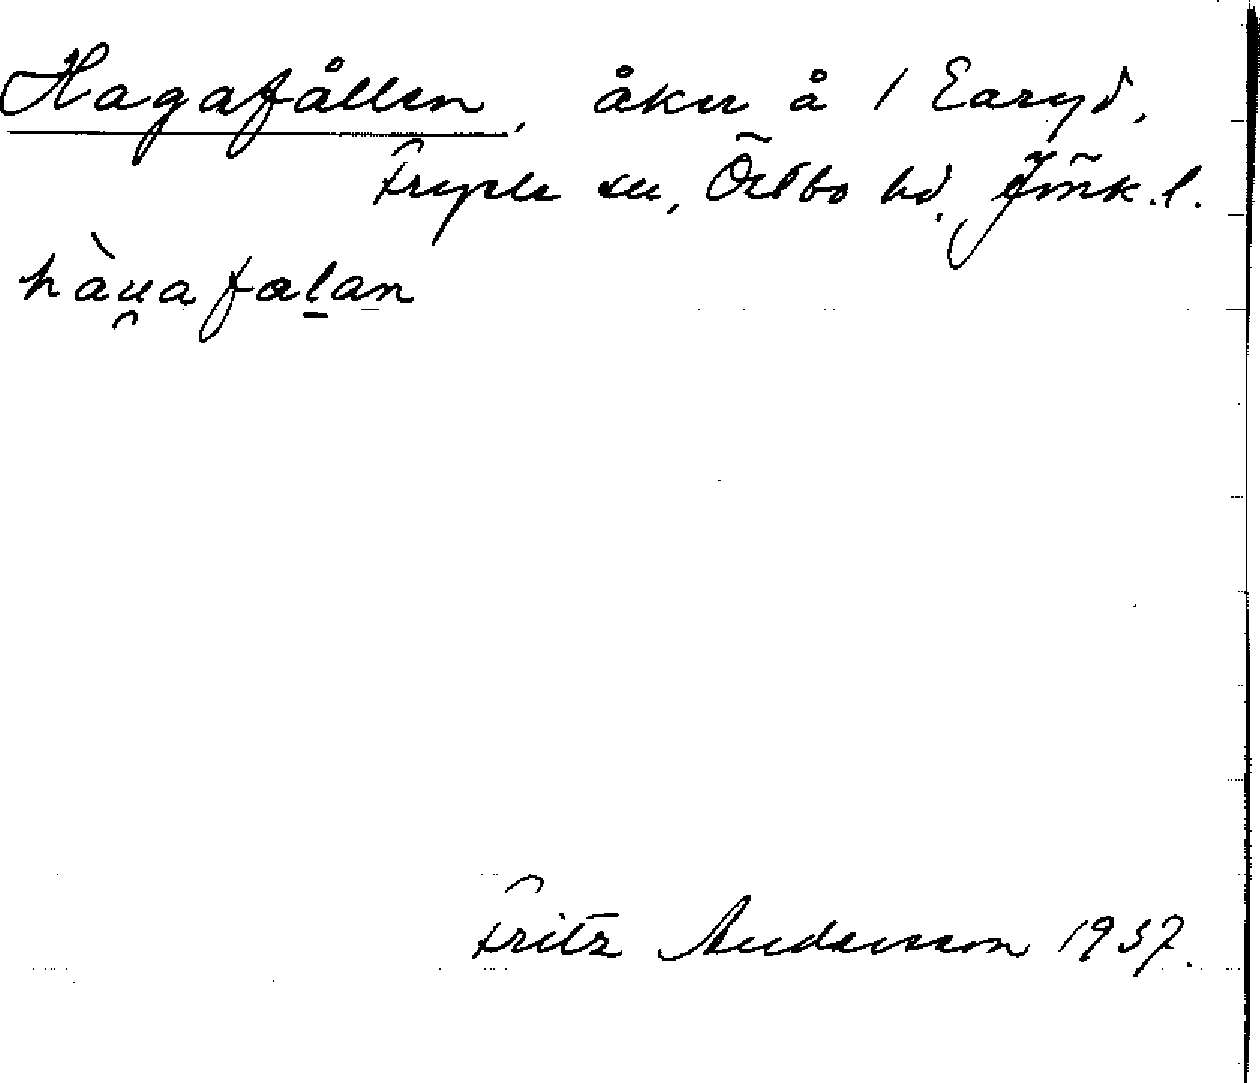 Hagafållen, åker å 1 Earyd,
Fryele sn, Östbo hd, Jönk.l.
hàu̯afaḻan
Fritz Andersson 1937.